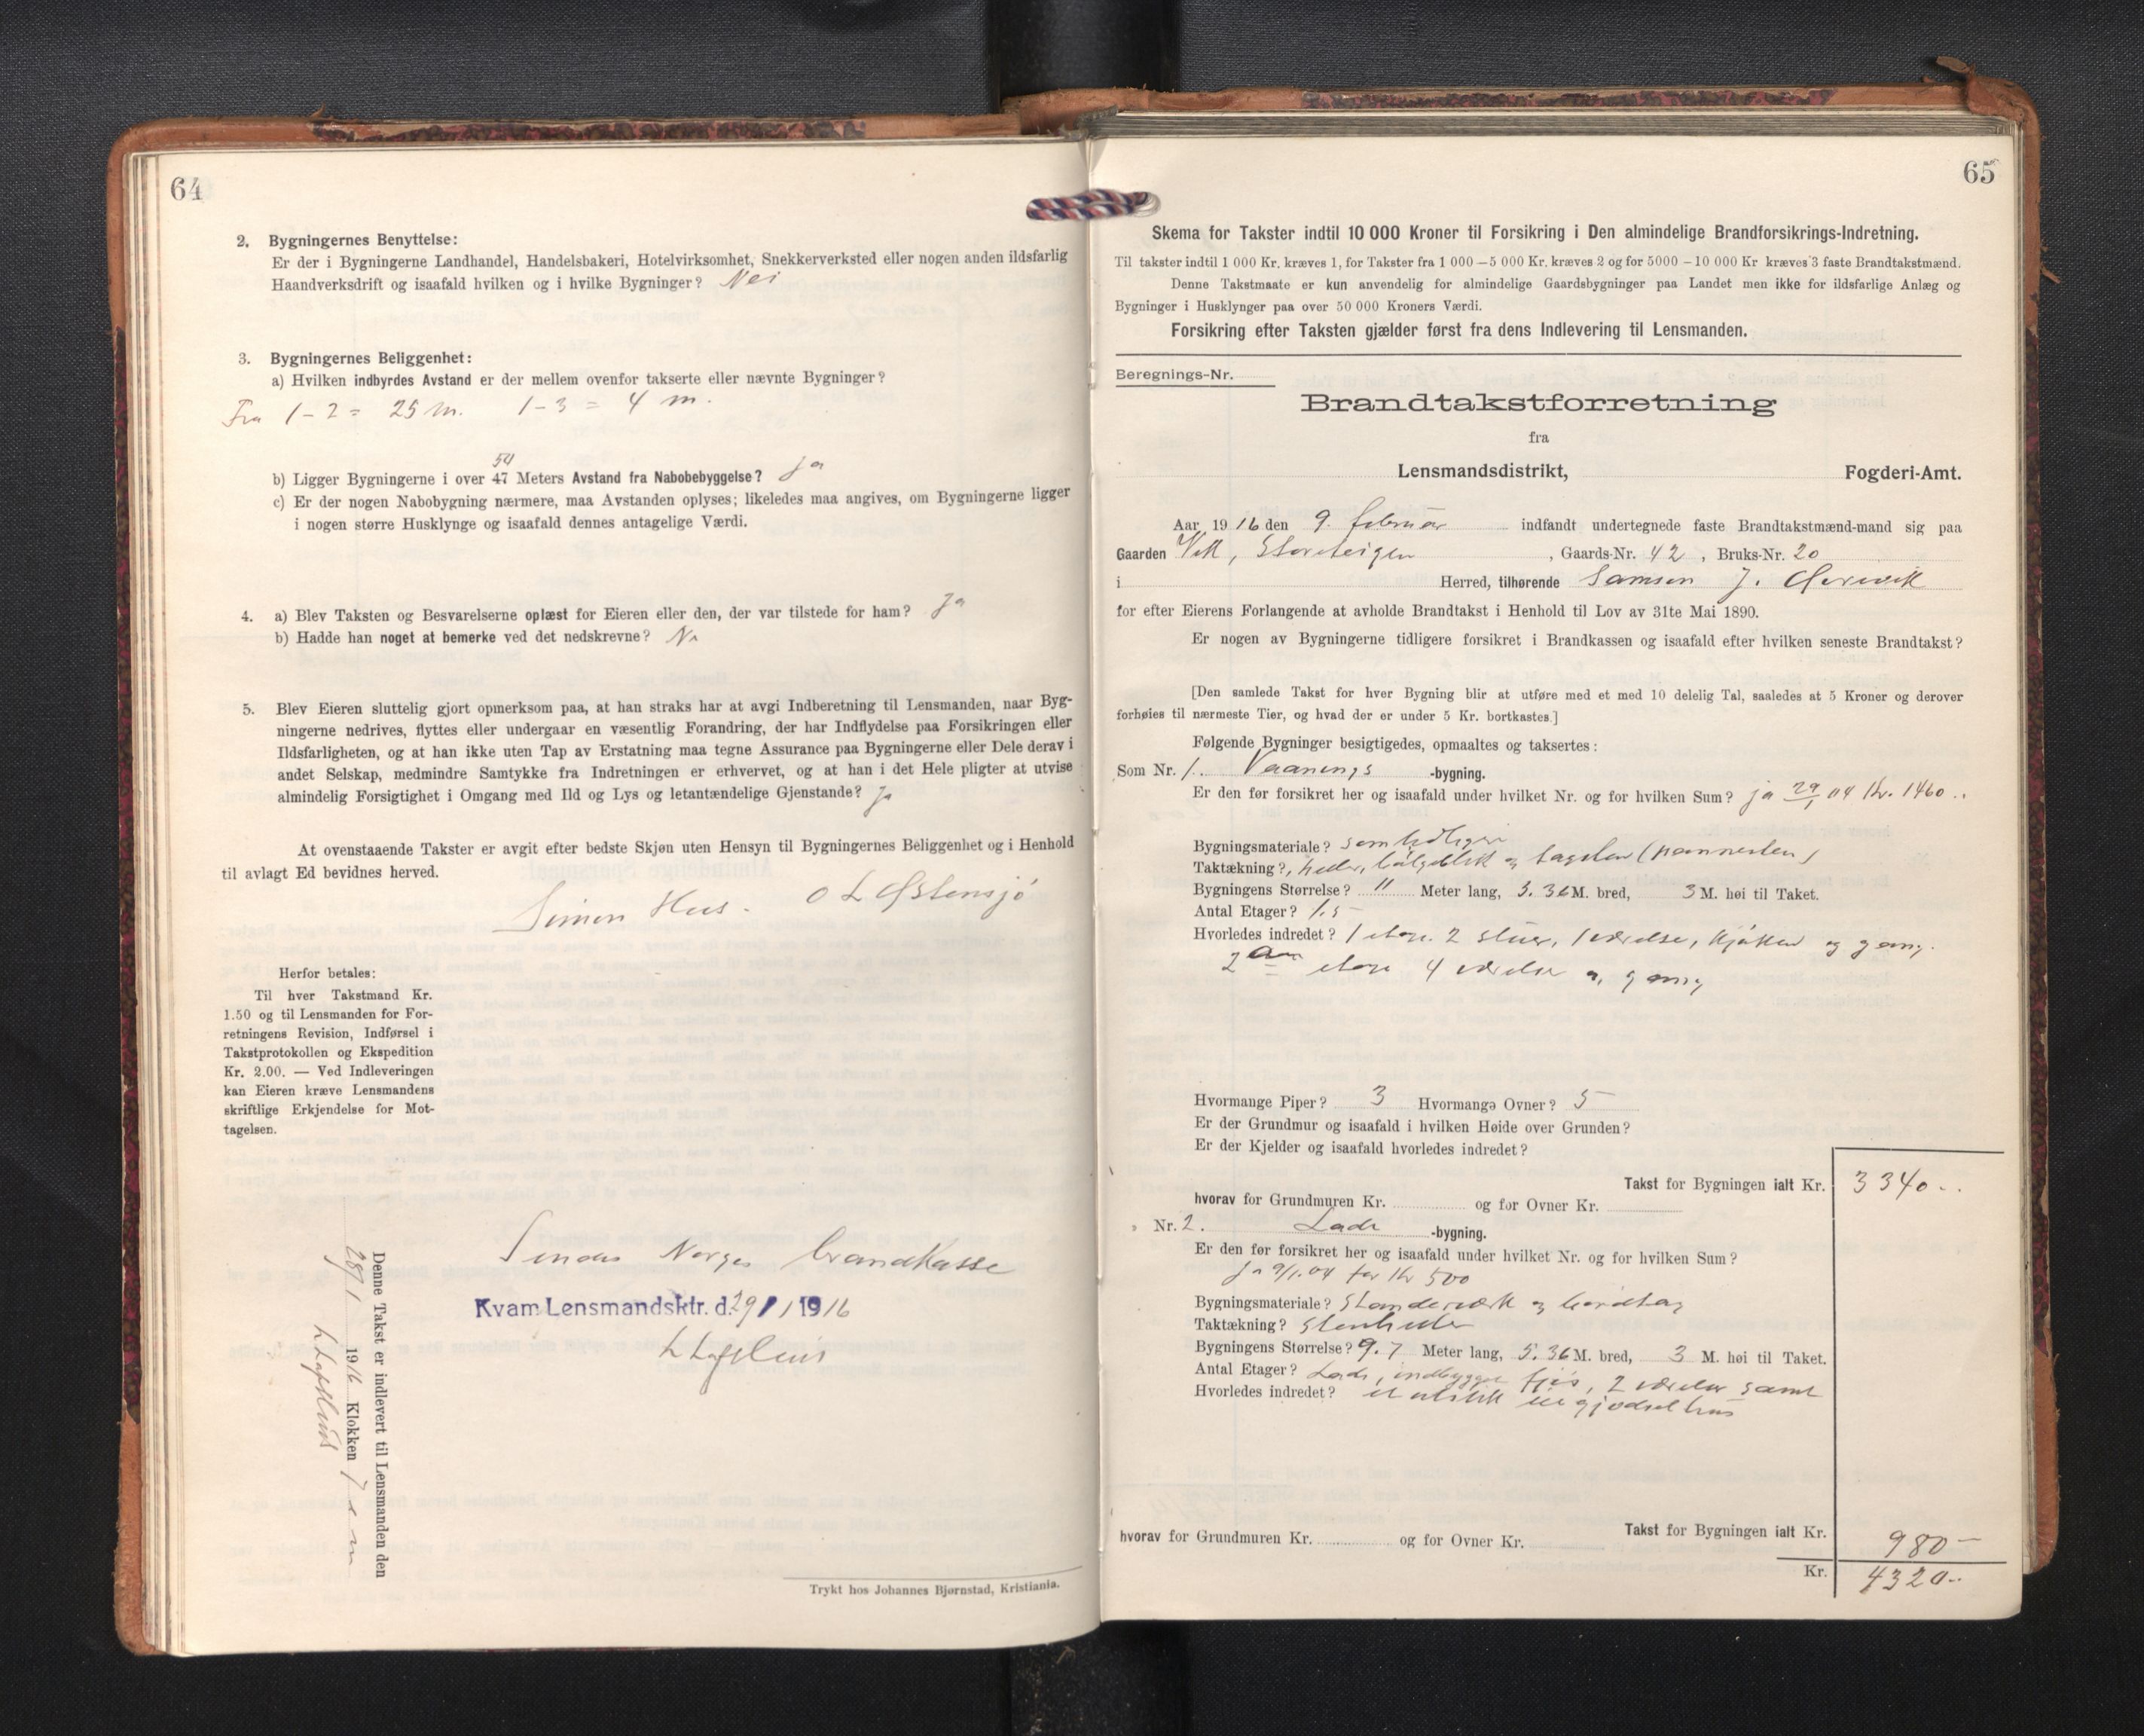 64
2. Bygningernes Benyttelse:
Er der i Bygningerne Landhandel, Handelsbakeri, Hotelvirksomhet, Snekkerverksted eller nogen anden ildsfarlig
Haandverksdrift og isaafald hvilken og i hvilke Bygninger? Nei
3. Bygningernes Beliggenhet:
a) Hvilken indbyrdes Avstand er der mellem ovenfor takserte eller nævnte Bygninger?
Fra 1-2 = 25 m. 1-3 = 4 m.
54
b) Ligger Bygningerne i over 47 Meters Avstand fra Nabobebyggelse? Ja
c) Er der nogen Nabobygning nærmere, maa Avstanden oplyses; likeledes maa angives, om Bygningerne ligger
i nogen større Husklynge og isaafald dennes antagelige Værdi.
4. a) Blev Taksten og Besvarelserne oplæst for Eieren eller den, der var tilstede for ham? Ja
b) Hadde han noget at bemerke ved det nedskrevne?
5. Blev Eieren sluttelig gjort opmerksom paa, at han straks har at avgi Indberetning til Lensmanden, naar Byg-
ningerne nedrives, flyttes eller undergaar en væsentlig Forandring, der har Indflydelse paa Forsikringen eller
Ildsfarligheten, og at han ikke uten Tap av Erstatning maa tegne Assurance paa Bygningerne eller Dele derav i
andet Selskap, medmindre Samtykke fra Indretningen er erhvervet, og at han i det Hele pligter at utvise
almindelig Forsigtighet i Omgang med Ild og Lys og letantændelige Gjenstande? Ja
At ovenstaaende Takster er avgit efter bedste Skjøn uten Hensyn til Bygningernes Beliggenhet og i Henhold
til avlagt Ed bevidnes herved.
Simon Hus. O L Østensjö
Herfor betales:
Til hver Takstmand Kr.
1.50 og til Lensmanden for For-
retningens Revision, Indførsel i
Takstprotokollen og Ekspedition
Kr. 2.00. — Ved Indleveringen
kan Eieren kræve Lensmandens
skriftlige Erkjendelse for Mot-
tagelsen.
Denne Takst er indlevert til Lensmanden den
1916 Klokken 7
Sendes Norges brandkasse
Kvam Lensmandsktr. d. 29/1 1916
Trykt hos Johannes Bjørnstad, Kristiania.
65
Skema for Takster indtil 10 000 Kroner til Forsikring i Den almindelige Brandforsikrings-Indretning.
Til takster indtil 1 000 Kr. kræves 1, for Takster fra 1 000 — 5 000 Kr. kræves 2 og for 5000 — 10 000 Kr kræves 3 faste Brandtakstmænd.
Denne Takstmaate er kun anvendelig for almindelige Gaardsbygninger paa Landet men ikke for ildsfarlige Anlæg og
Bygninger i Husklynger paa over 50 000 Kroners Værdi.
Forsikring efter Taksten gjælder først fra dens Indlevering til Lensmanden.
Beregnings-Nr.
Brandtakstforretning
fra
Lensmandsdistrikt, Fogderi-Amt.
Aar 1916 den 9. februar indfandt undertegnede faste Brandtakstmænd-mand sig paa
Gaarden Vik, Storeteigen, Gaards-Nr. 42, Bruks-Nr. 20
i Herred, tilhørende Samson J.
for efter Eierens Forlangende at avholde Brandtakst i Henhold til Lov av 31te Mai 1890.
Er nogen av Bygningerne tidligere forsikret i Brandkassen og isaafald efter hvilken seneste Brandtakst?
[Den samlede Takst for hver Bygning blir at utføre med et med 10 delelig Tal, saaledes at 5 Kroner og derover
forhøies til nærmeste Tier, og hvad der er under 5 Kr. bortkastes.]
Følgende Bygninger besigtigedes, opmaaltes og taksertes:
Som Nr. 1. Vaanings -bygning.
Er den før forsikret her og isaafald under hvilket Nr. og for hvilken Sum? ja 29/1 04 Kr. 1460..
Bygningsmateriale?
Taktækning? heller, bölgeblik og tagsten (pannesten)
Bygningens Størrelse? 11 Meter lang, 5.36 M. bred, 3 M. høi til Taket.
Antal Etager? 1.5
Hvorledes indredet? 1 etage 2 stuer, 1 værelse, kjökken og gang.
2den etage 4 værelser og gang
Hvormange Piper? 3 Hvormange Ovner? 5
Er der Grundmur og isaafald i hvilken Høide over Grunden?
Er der Kjelder og isaafald hvorledes indredet?
Takst for Bygningen ialt Kr. 3340..
hvorav for Grundmuren Kr. og for Ovner Kr.
" Nr. 2. Lade -bygning.
Er den før forsikret her og isaafald under hvilket Nr. og for hvilken Sum?
Ja 9/1.04 for Kr 500
Bygningsmateriale? Standerværk og bordtag
Taktækning? Stenheller
Bygningens Størrelse? 9.7 Meter lang, 5.36 M. bred, 3 M. høi til Taket.
Antal Etager? Lade, indbygget fjös, 2 værelser samt
Hvorledes indredet? et utstik til gjödselhus
Takst for Bygningen ialt Kr. 980-
hvorav for Grundmuren Kr. og for Ovner Kr.
Kr. 4320..